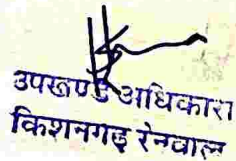 उपखण्ड अधिकारी
किशनगढ़ रेनवाल